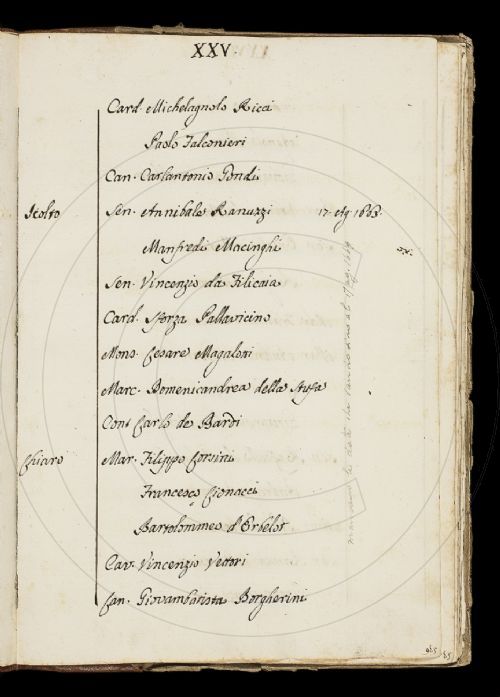 XXV.
Card. Michelagnolo Ricci
Paolo Falconieri
Can. Carlantonio Gondi
Scolto Sen. Annibale Ranuzzi 17. Ag. 1663.
Manfredi Macinghi
Sen. Vincenzio da Filicaia
Card. Sforza Pallavicino
Mons. Cesare Magalotti
Marc. Domenicandrea della Stufa
Con. Carlo de Bardi
Chiaro Mar. Filippo Corsini
Francesco Cionacci
Bartolommeo d'Erbelot
Cav. Vincenzio Vettori
Can. Giovambatista Borgherini